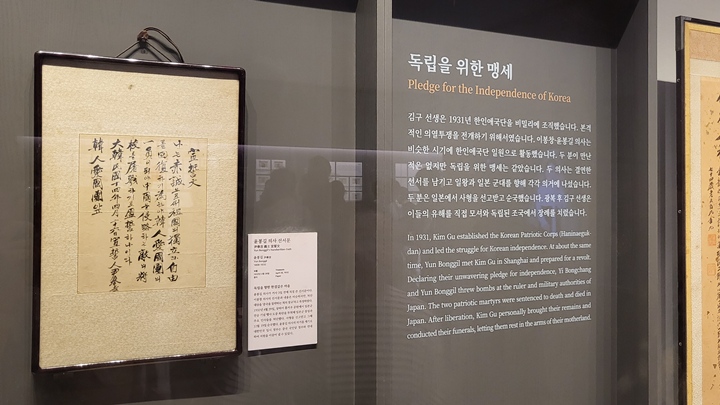 宣誓文
나는赤誠으로써祖國의獨立과自由
를回復하기爲하야韓人愛國團의
一員이되야中國을侵略하는敵의將
校를屠戮하기로盟誓하나이다
大韓民國十四年四月二十六日宣誓人尹奉吉
韓人愛國團앞
윤봉길 의사 선서문
독립을 위한 맹세
Pledge for the Independence of Korea
김구 선생은 1931년 한인애국단을 비밀리에 조직했습니다. 본격
적인 의열투쟁을 전개하기 위해서였습니다. 이봉창·윤봉길 의사는
비슷한 시기에 한인애국단 일원으로 활동했습니다. 두 분이 만난
적은 없지만 독립을 위한 맹세는 같았습니다. 두 의사는 결연한
선서를 남기고 일왕과 일본 군대를 향해 각각 의거에 나섰습니다.
두 분은 일본에서 사형을 선고받고 순국했습니다. 광복 후 김구 선생은
이들의 유해를 직접 모셔와 독립된 조국에서 장례를 치렀습니다.
In 1931, Kim Gu established the Korean Patriotic Corps (Haninaeguk-
dan) and led the struggle for Korean independence. At about the same
time, Yun Bonggil met Kim Gu in Shanghai and prepared for a revolt.
Declaring their unwavering pledge for independence, Yi Bongchang
and Yun Bonggil threw bombs at the ruler and military authorities of
Japan. The two patriotic martyrs were sentenced to death and died in
Japan. After liberation, Kim Gu personally brought their remains and
conducted their funerals, letting them rest in the arms of their motherland.